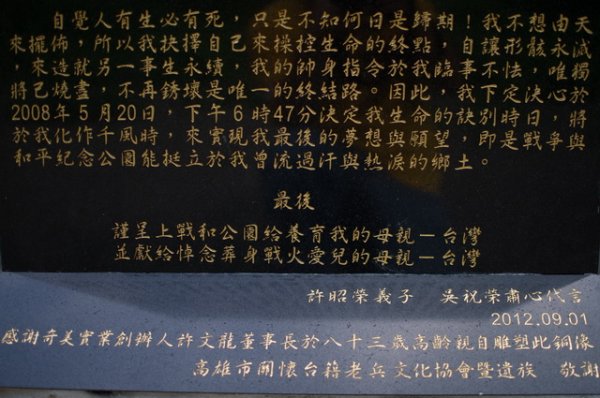 自覺人有生必有死,只是不知何日是歸期!我不想由天
來擺佈,所以我抉擇自己來操控生命的終點,自讓形骸永滅
,來造就另一事生永續,我的帥身指令於我臨事不怯,唯獨
將己燒盡,不再銹壞是唯一的終結路。因此,我下定決心於
2008年5月20日 下午6時47分決定我生命的訣別時日,將
於我化作千風時,來實現我最後的夢想與願望,即是戰爭與
和平紀念公園能挺立於我曾流過汗與熱淚的鄉土。
最後
謹呈上戰和公園給養育我的母親-台灣
並獻給悼念葬身戰火愛兒的母親-台灣
許昭榮義子 吳祝榮肅心代言
2012.09.01
感謝奇美實業創辦人許文龍董事長於八十三歲高齡親自雕塑此銅像
高雄市關懷台籍老兵文化協會暨遺族 敬謝